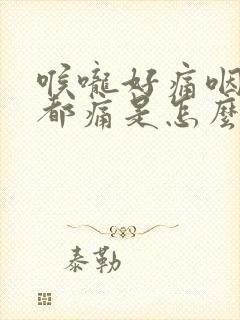 喉嚨好痛咽
都痛是怎麼
泰勒